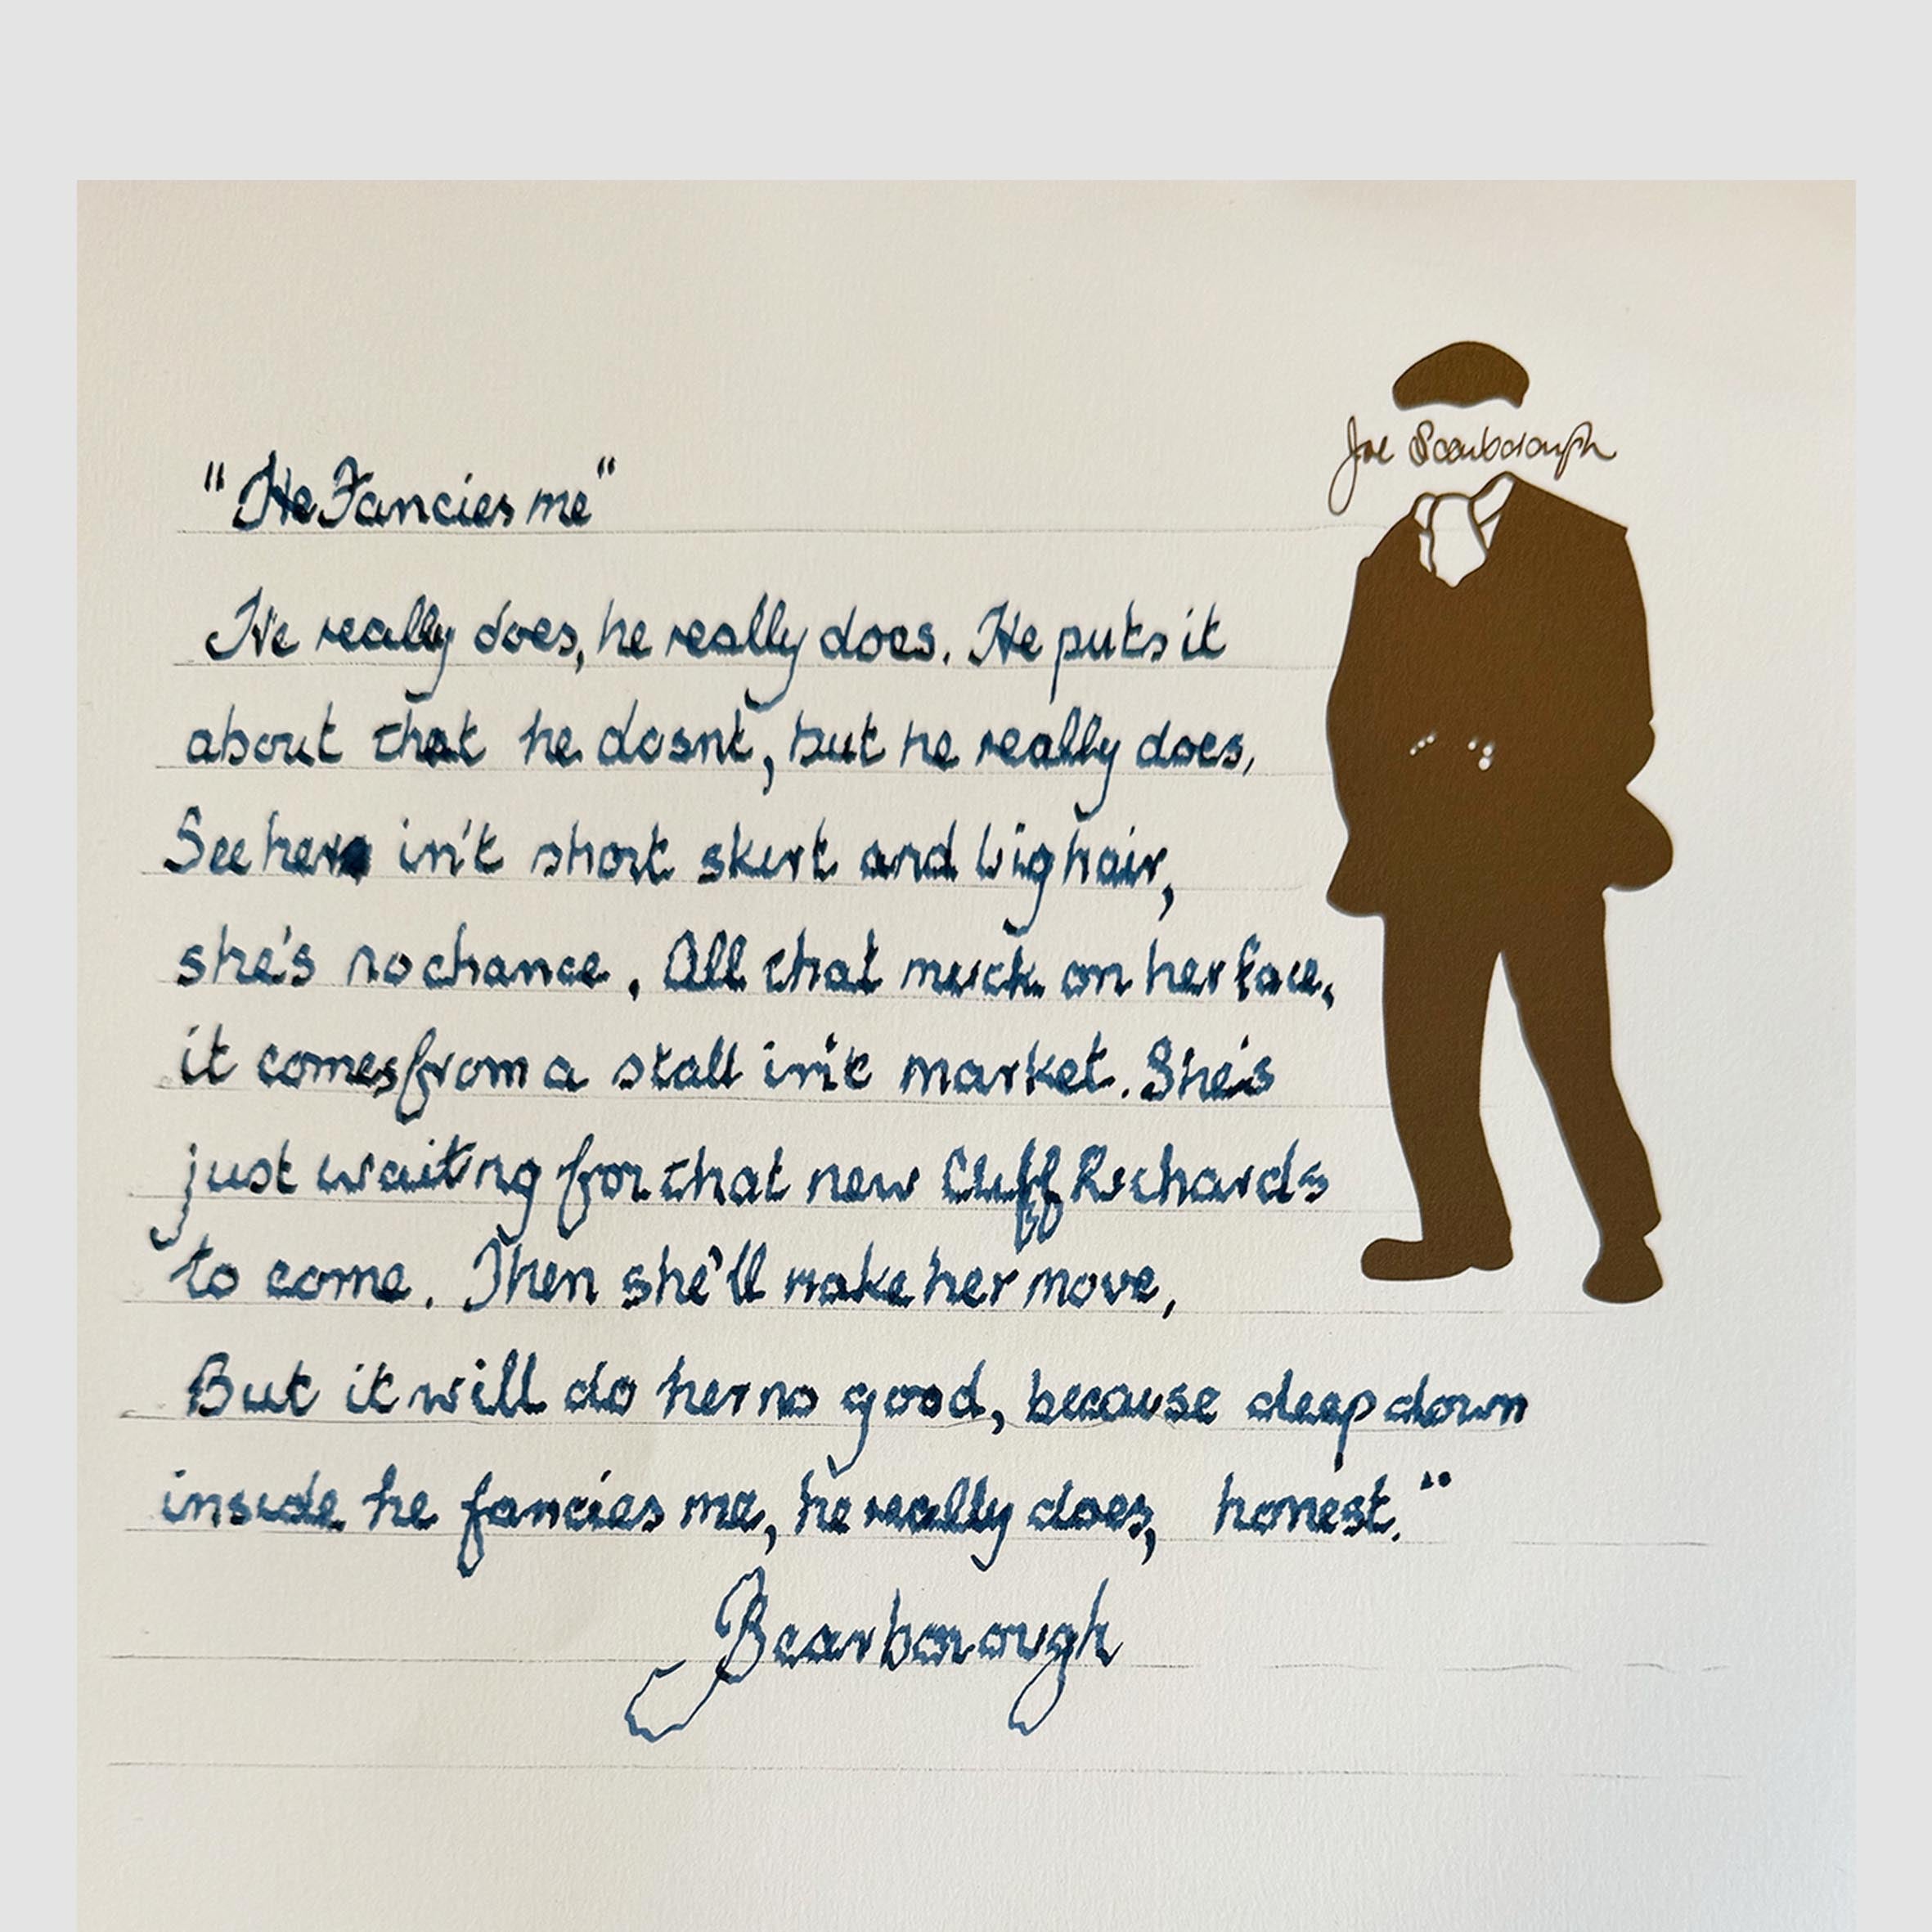 Joe Scarborough
"He Fancies me"
He really does, he really does. He puts it
about that he dosnt, but he really does,
See here in't short skirt and big hair,
she's no chance. All that muck on her face,
it comes from a stall in't market. She's
just waiting for that new Cliff Richards
to come. Then she'll make her move,
But it will do her no good, because deep down
inside he fancies me, he really does, honest."
JScarborough